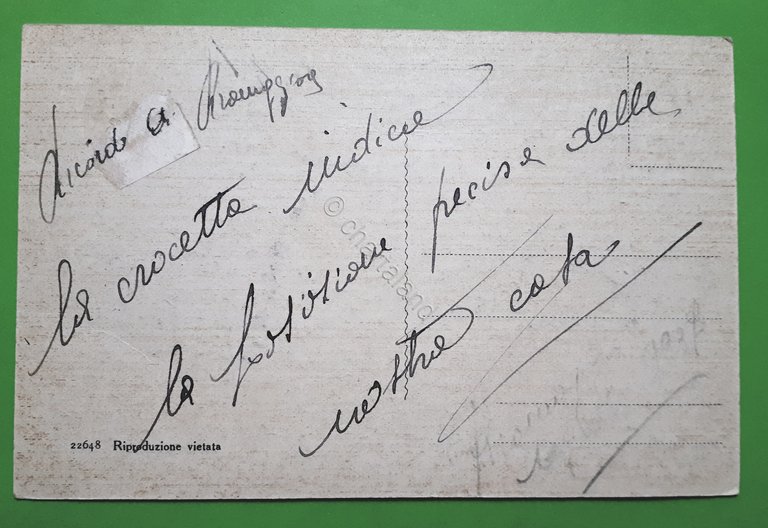 Ricordo di
la crocetta indica
la posizione precisa della
nostra casa
22648 Riproduzione vietata